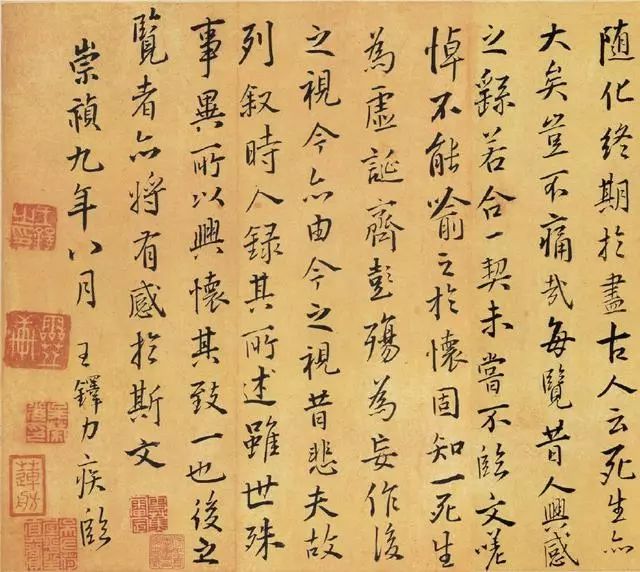 随化終期於盡古人云死生亦
大矣豈不痛哉每覽昔人興感
之繇若合一契未嘗不臨文嗟
悼不能喻之於懷固知一死生
為虛誕齊彭殤為妄作後
之視今亦由今之視昔悲夫故
列叙時人録其所述雖世殊
事異所以興懷其致一也後之
覽者亦將有感於斯文
崇禎九年八月 王鐸力疾臨